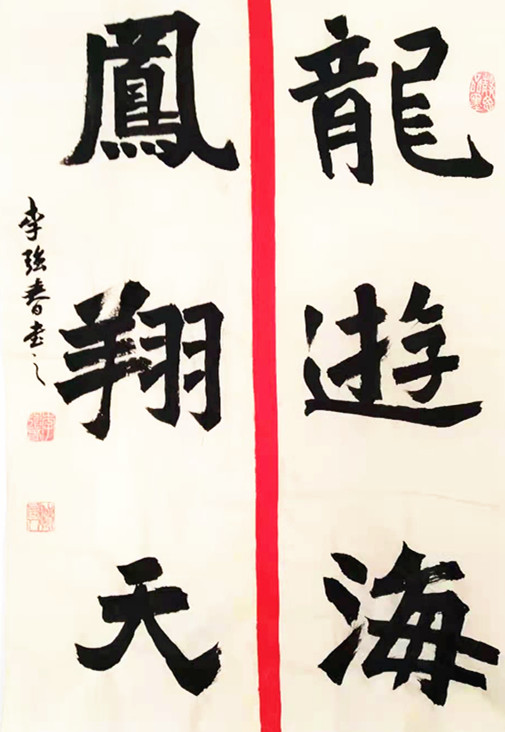 龍遊海
鳳翔天
李強春書之